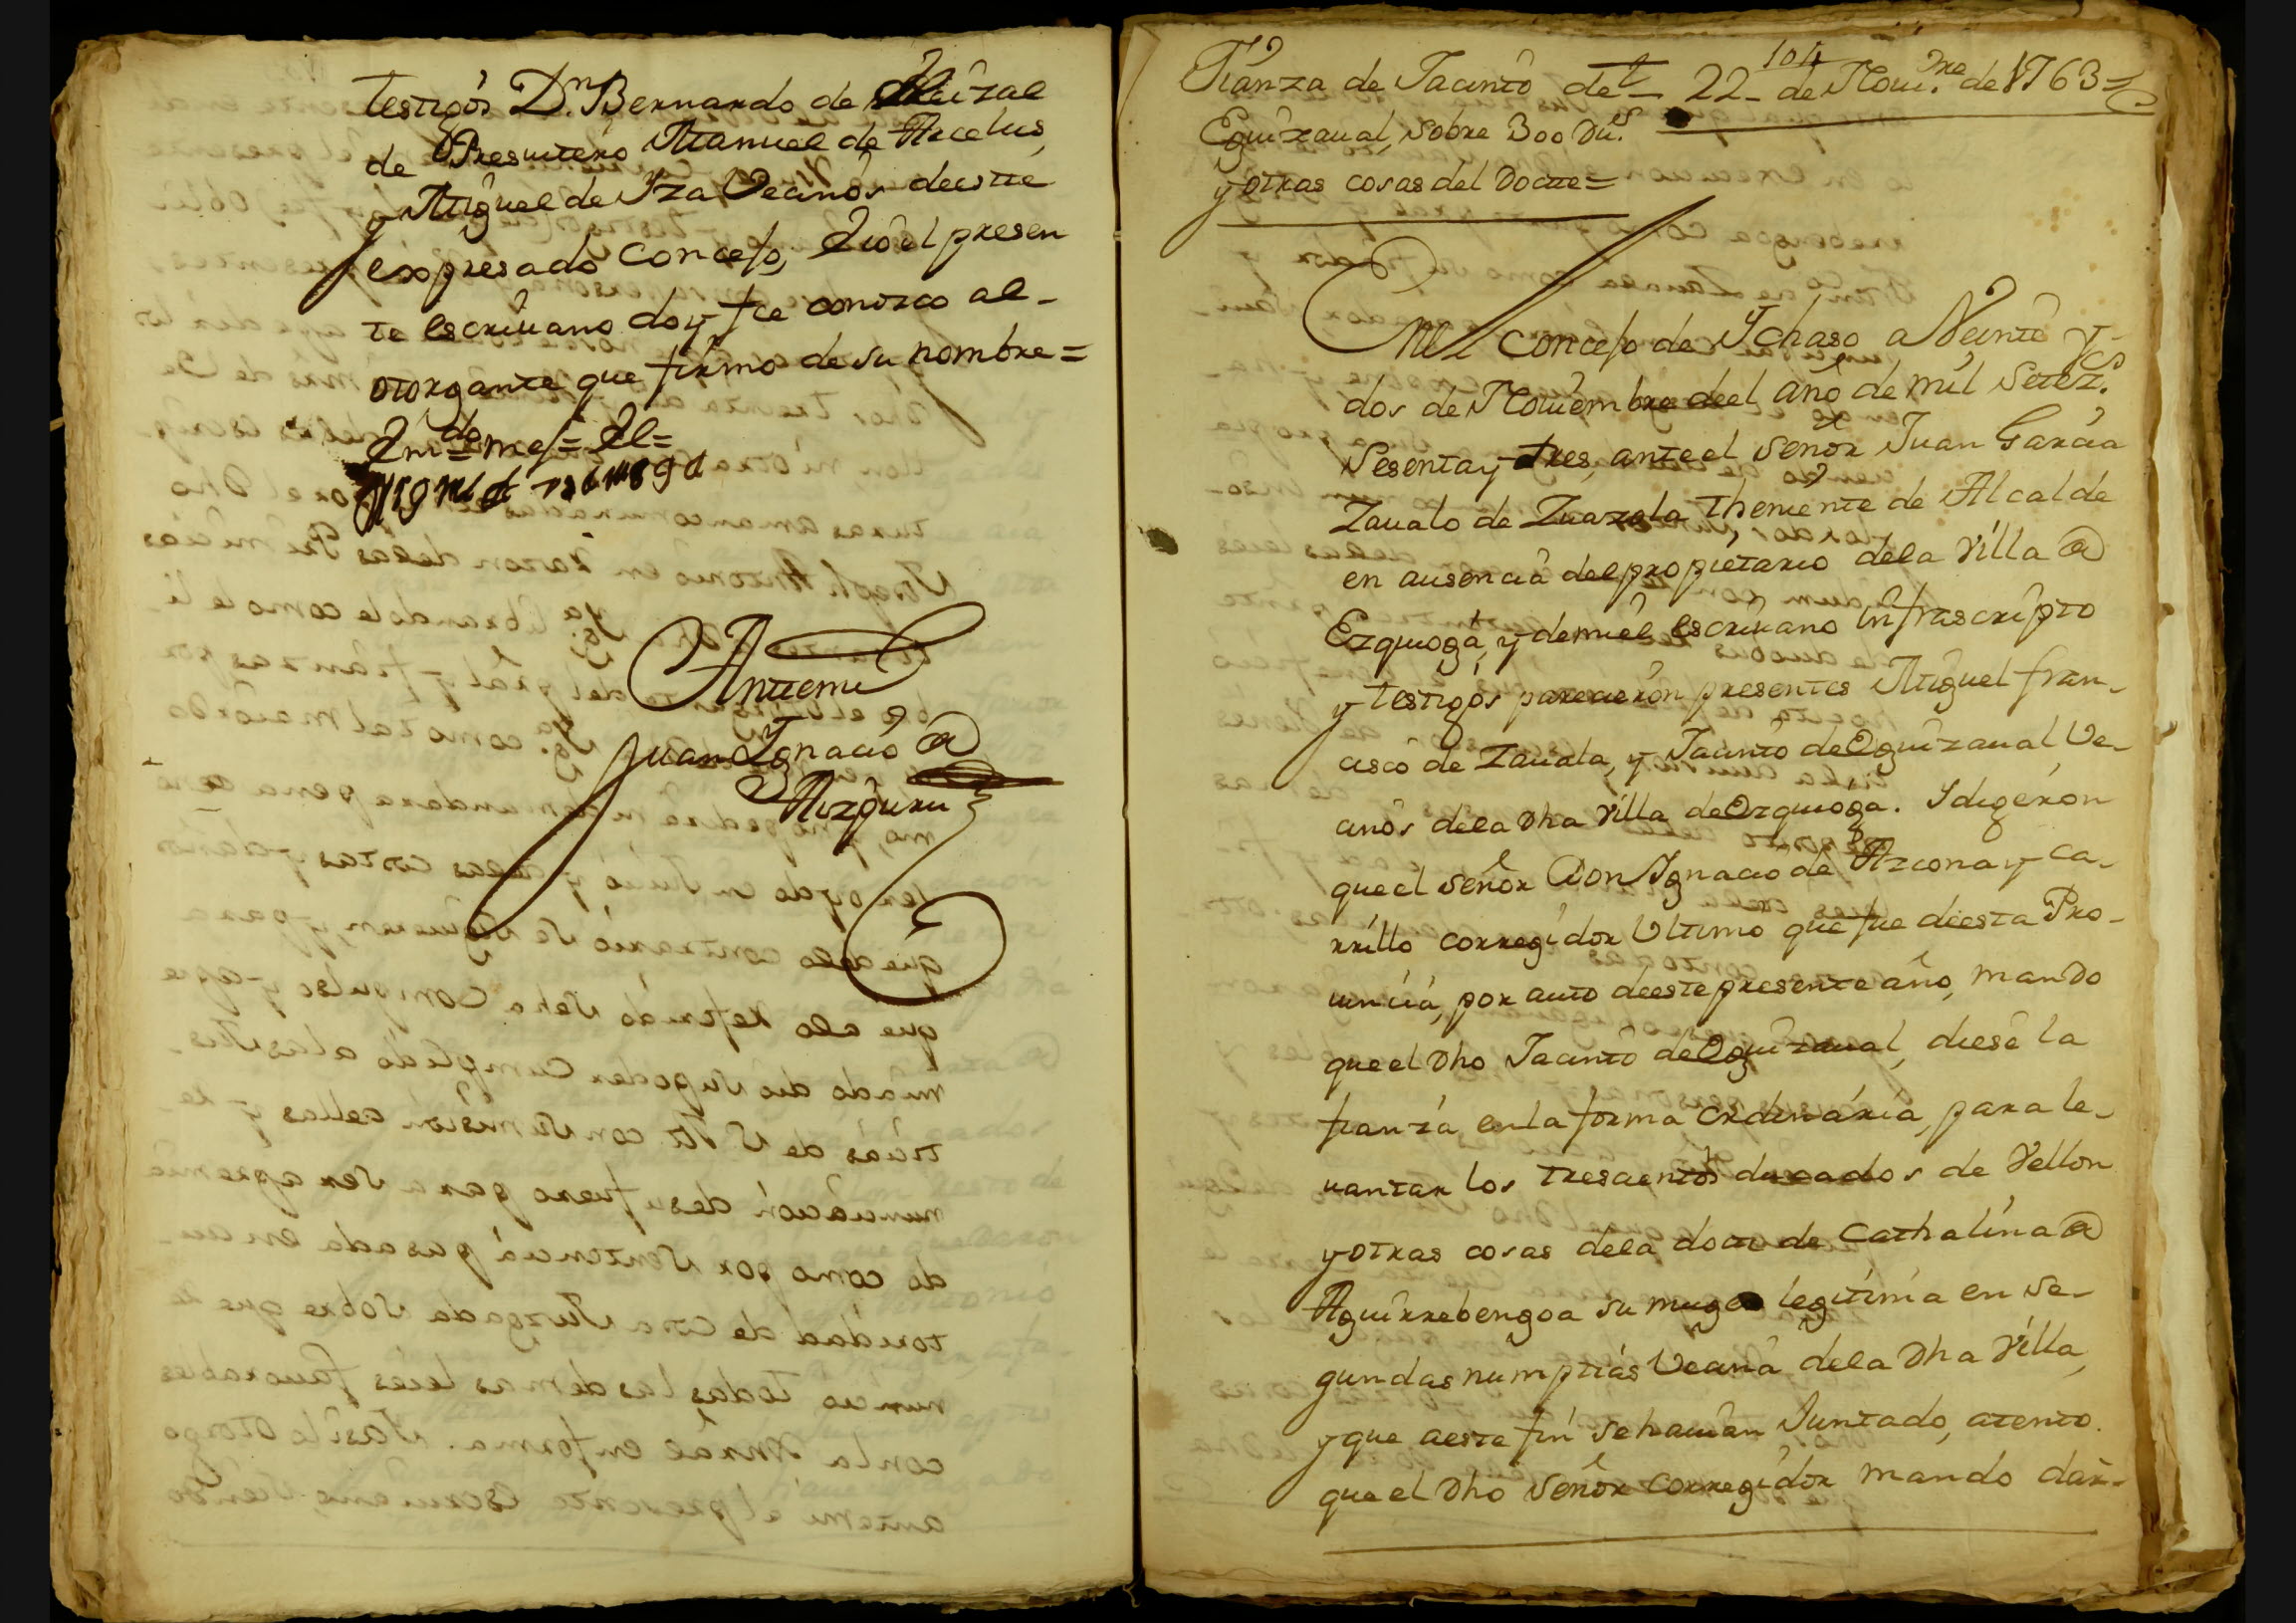 testigos Dn. Bernardo de
de Presuitero Manuel de Arcelus,
y Miguel de Yza Vecinos deeste
expresado Concejo, Eió el presen
te escriuano doy fee conozco al-
otorgante que firmo de su nombre=
Em.do= mef= El=
Antemi
Juan Ignacio @
Aizpuru
104
Fianza de Jacinto de 22- de Nou.re de 1763=
Eguizaual, sobre 300 Du.s
y otras cosas del Docte=
En el Concejo de Ychaso a Veinte y
dos de Nouiembre deel año de mil Setez.s
Sesenta y tres, ante el señor Juan Garcia
Zaualo de Zuazola Theniente de Alcalde
en ausencia del propietario dela Villa @
Ezquioga, y demi el escriuano infrascripto
y testigos parecieron presentes Miguel Fran-
cisco de Zauala, y Jacinto de Eguizaual Ve-
cinos dela dha Villa de Ezquioga. Y digeron
que el señor Don Ignacio de Azcona y Ca-
rrillo corregidor Ultimo que fue deesta Pro-
uincia, por auto deeste presente año, mando
que el dho Jacinto de Eguizaual, diese la
fianza en la forma ordinaria, para le-
uantar los trescientos ducados de Vellon
y otras cosas dela docte de Cathalina @
Aguirrebengoa su muger legitima en se-
gundas numptias Vecina dela dha Villa,
y que aeste fin se hauian Juntado, atento
que el dho señor corregidor mando dar-